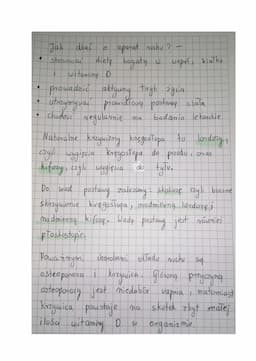 Jak dbać o aparat ruchu? -
• stosować dietę bogatą w wapń, białko
i witaminę D
• prowadzić aktywny tryb życia
• utrzymywać prawidłową postawę ciała
• chodzić regularnie na badania lekarskie
Naturalne krzywizny kręgosłupa to lordozy,
czyli wygięcia kręgosłupa do przodu, oraz
kifozy, czyli wygięcia do tyłu.
Do wad postawy zaliczamy: skoliozę czyli boczne
skrzywienie kręgosłupa, nadmierną lordozę i
nadmierną kifozę. Wadą postawy jest również
płaskostopie.
Poważnymi chorobami układu ruchu są
osteoporoza i krzywica. Główną przyczyną
osteoporozy jest niedobór wapnia, natomiast
krzywica powstaje na skutek zbyt małej
ilości witaminy D w organizmie.